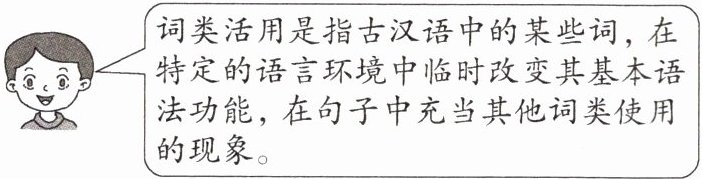 词类活用是指古汉语中的某些词，在
特定的语言环境中临时改变其基本语
法功能，在句子中充当其他词类使用
的现象。